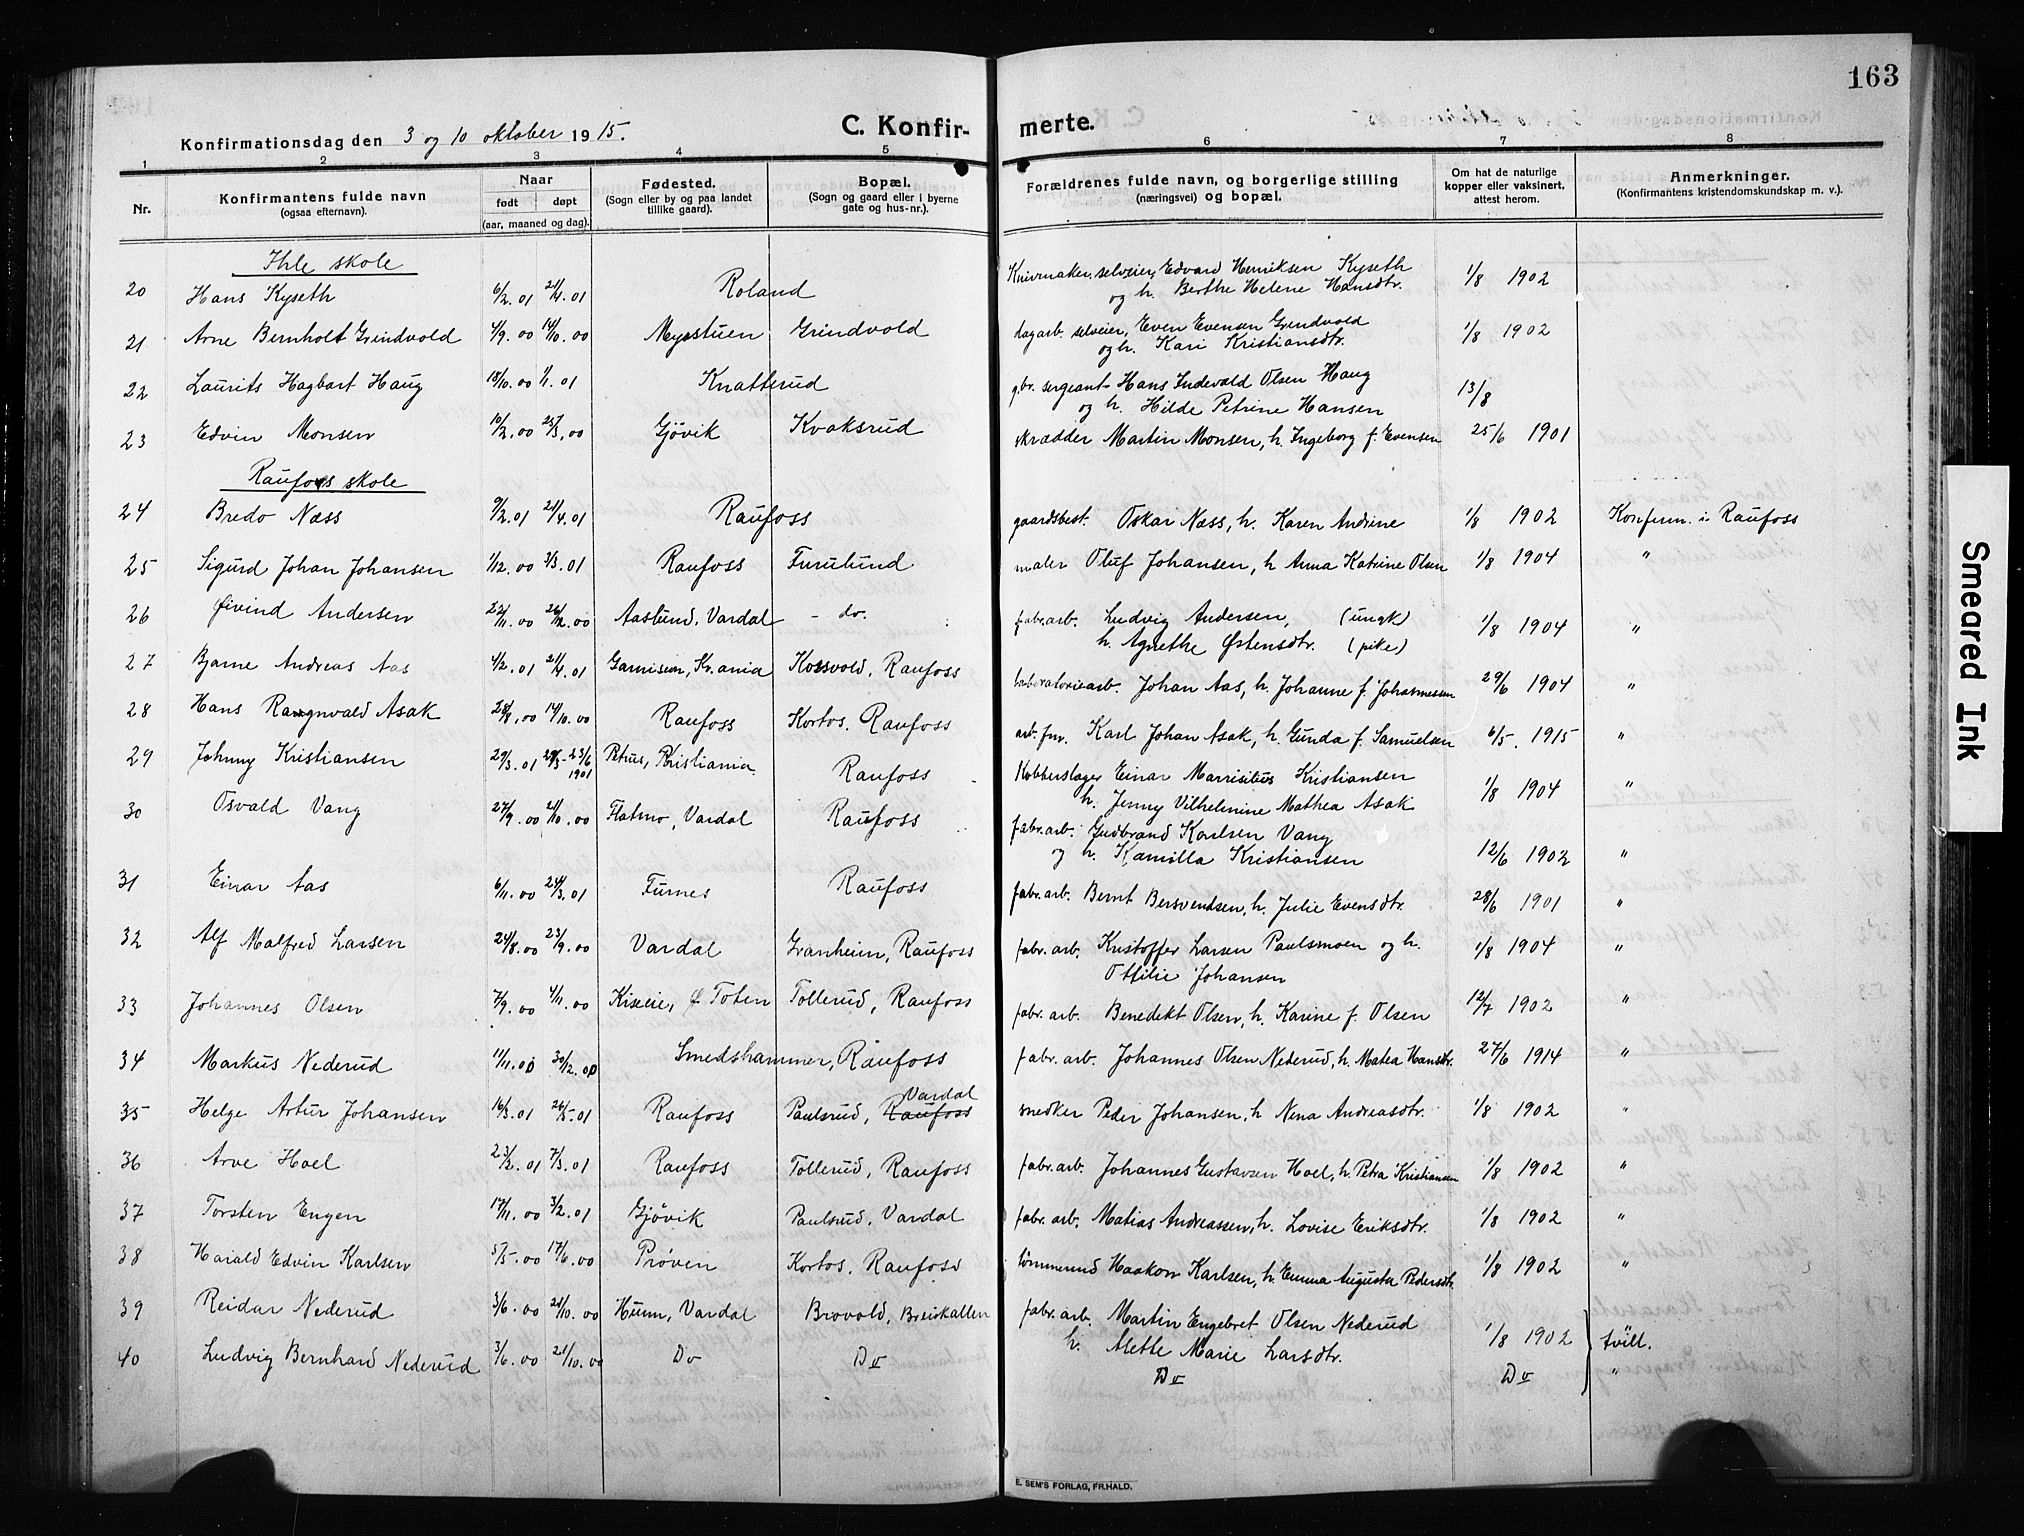 163
Konfirmationsdag den 3 og 10 oktober 1915.
C. Konfir- merte.
1 2 3 4 5 6 7 8
Nr.
Konfirmantens fulde navn (ogsaa efternavn).
Naar født døpt (aar, maaned og dag).
Fødested. (Sogn eller by og paa landet tillike gaard).
Bopæl. (Sogn og gaard eller i byerne gate og hus-nr.).
Forældrenes fulde navn, og borgerlige stilling (næringsvei) og bopæl.
Om hat de naturlige kopper eller vaksinert, attest herom.
Anmerkninger. (Konfirmantens kristendomskundskap m. v.).
Ihle skole
20 Hans Kyseth 6/2.01 21/4.01 Roland Knivmaker, selveier, Edvard Henriksen Kyseth 1/8 1902
og h. Berthe Helene Hansdtr.
21 Arne Bernholt Grindvold 4/9.00 14/10.00 Myrstuen Grindvold dagarb. selveier, Even Evensen Grindvold 1/8 1902
og h. Kari Kristiansdtr.
22 Laurits Hagbart Haug 18/10.00 1/1.01 Knatterud gbr. sergeant Hans Indevald Olsen Haug 13/8
og h. Hilde Petrine Hansen
23 Edvin Monsen 10/2.00 25/3.00 Gjövik Kvaksrud skrædder Martin Monsen, h. Ingeborg f. Evensen 25/6 1901
Raufoss skole
24 Bredo Næss 9/2.01 21/4.01 Raufoss gaardsbest. Oskar Næss, h. Karen Andrine 1/8 1902 Konferm. i Raufoss
25 Sigurd Johan Johansen 1/12.00 3/3.01 Raufoss Furulund maler Oluf Johansen, h Anna Katrine Olsen 1/8 1904 "
26 Øivind Andersen 22/11.00 26/12.00 Aaslund, Vardal - do. fabr.arb. Ludvig Andersen, (ungk) 1/8 1904 "
h. Agnethe Østensdtr. (pike)
27 Bjarne Andreas Aas 4/2.01 21/4.01 Garnisem, Kr.ania Kossvold, Raufoss laboratoriearb. Johan Aas, h. Johanne f. Johannessen 29/6 1904 "
28 Hans Ragnvald Asak 28/8.00 14/10.00 Raufoss Kortos, Raufoss arb. fmr. Karl Johan Asak, h. Gunda f. Samuelsen 6/5. 1915 "
29 Johnny Kristiansen 29/3.01 23/6 1901 Petrus, Kristiania Raufoss Kobberslager Einar Marrisitius Kristiansen 1/8 1904 "
h. Jenny Vilhelmine Mathea Asak
30 Osvald Vang 27/9.00 21/10.00 Flatmo, Vardal Raufoss fabr.arb. Gudbrand Karlsen Vang
og h. Kamilla Kristiansen 12/6 1902 "
31 Einar Aas 6/11.00 24/3.01 Furnes Raufoss fabr. arb. Bernt Bersvendsen, h. Julie Evensdtr. 28/6 1901 "
32 Alf Malfred Larsen 24/8.00 23/9.00 Vardal Granheim, Raufoss fabr. arb. Kristoffer Larsen Paulsmoen og h. 1/8 1904 "
Ottilie Johansen
33 Johannes Olsen 7/9.00 4/11.00 Kiseie, Ø Toten Tollerud, Raufoss fabr. arb. Benedikt Olsen, h. Karine f. Olsen 12/7 1902 "
34 Markus Nederud 11/11.00 30/12.00 Smedshammer, Raufoss fabr. arb. Johannes Olsen Nederud, h. Matea Hansdtr. 27/6 1914 "
35 Helge Artur Johansen 16/3.01 26/5.01 Raufoss Paulsrud, Raufoss Vardal snedker Peder Johansen, h Nena Andreasdtr. 1/8 1902 "
36 Arve Hoel 23/2.01 7/3.01 Raufoss Tollerud, Raufoss fabr.arb. Johannes Gustavsen Hoel, h. Petra Kristiansen 1/8 1902 "
37 Torsten Engen 17/11.00 3/2.01 Gjövik Paulsrud, Vardal fabr. arb. Matias Andreassen, h. Lovise Eriksdtr. 1/8 1902 "
38 Harald Edvin Karlsen 5/5.00 17/6.00 Prøven Kortos, Raufoss tömmermd Haakon Karlsen, h. Emma Augusta Pedersdtr. 1/8 1902 "
39 Reidar Nederud 3/6.00 21/10.00 Hunn, Vardal Brovold, Breiskallen fabr. arb. Martin Engebret Olsen Nederud 1/8 1902 tvill.
h. Alette Marie Larsdtr.
40 Ludvig Bernhard Nederud 3/6.00 21/10.00 Do Do Do Do "
E. SEM'S FORLAG, FR.HALD.
Smeared Ink